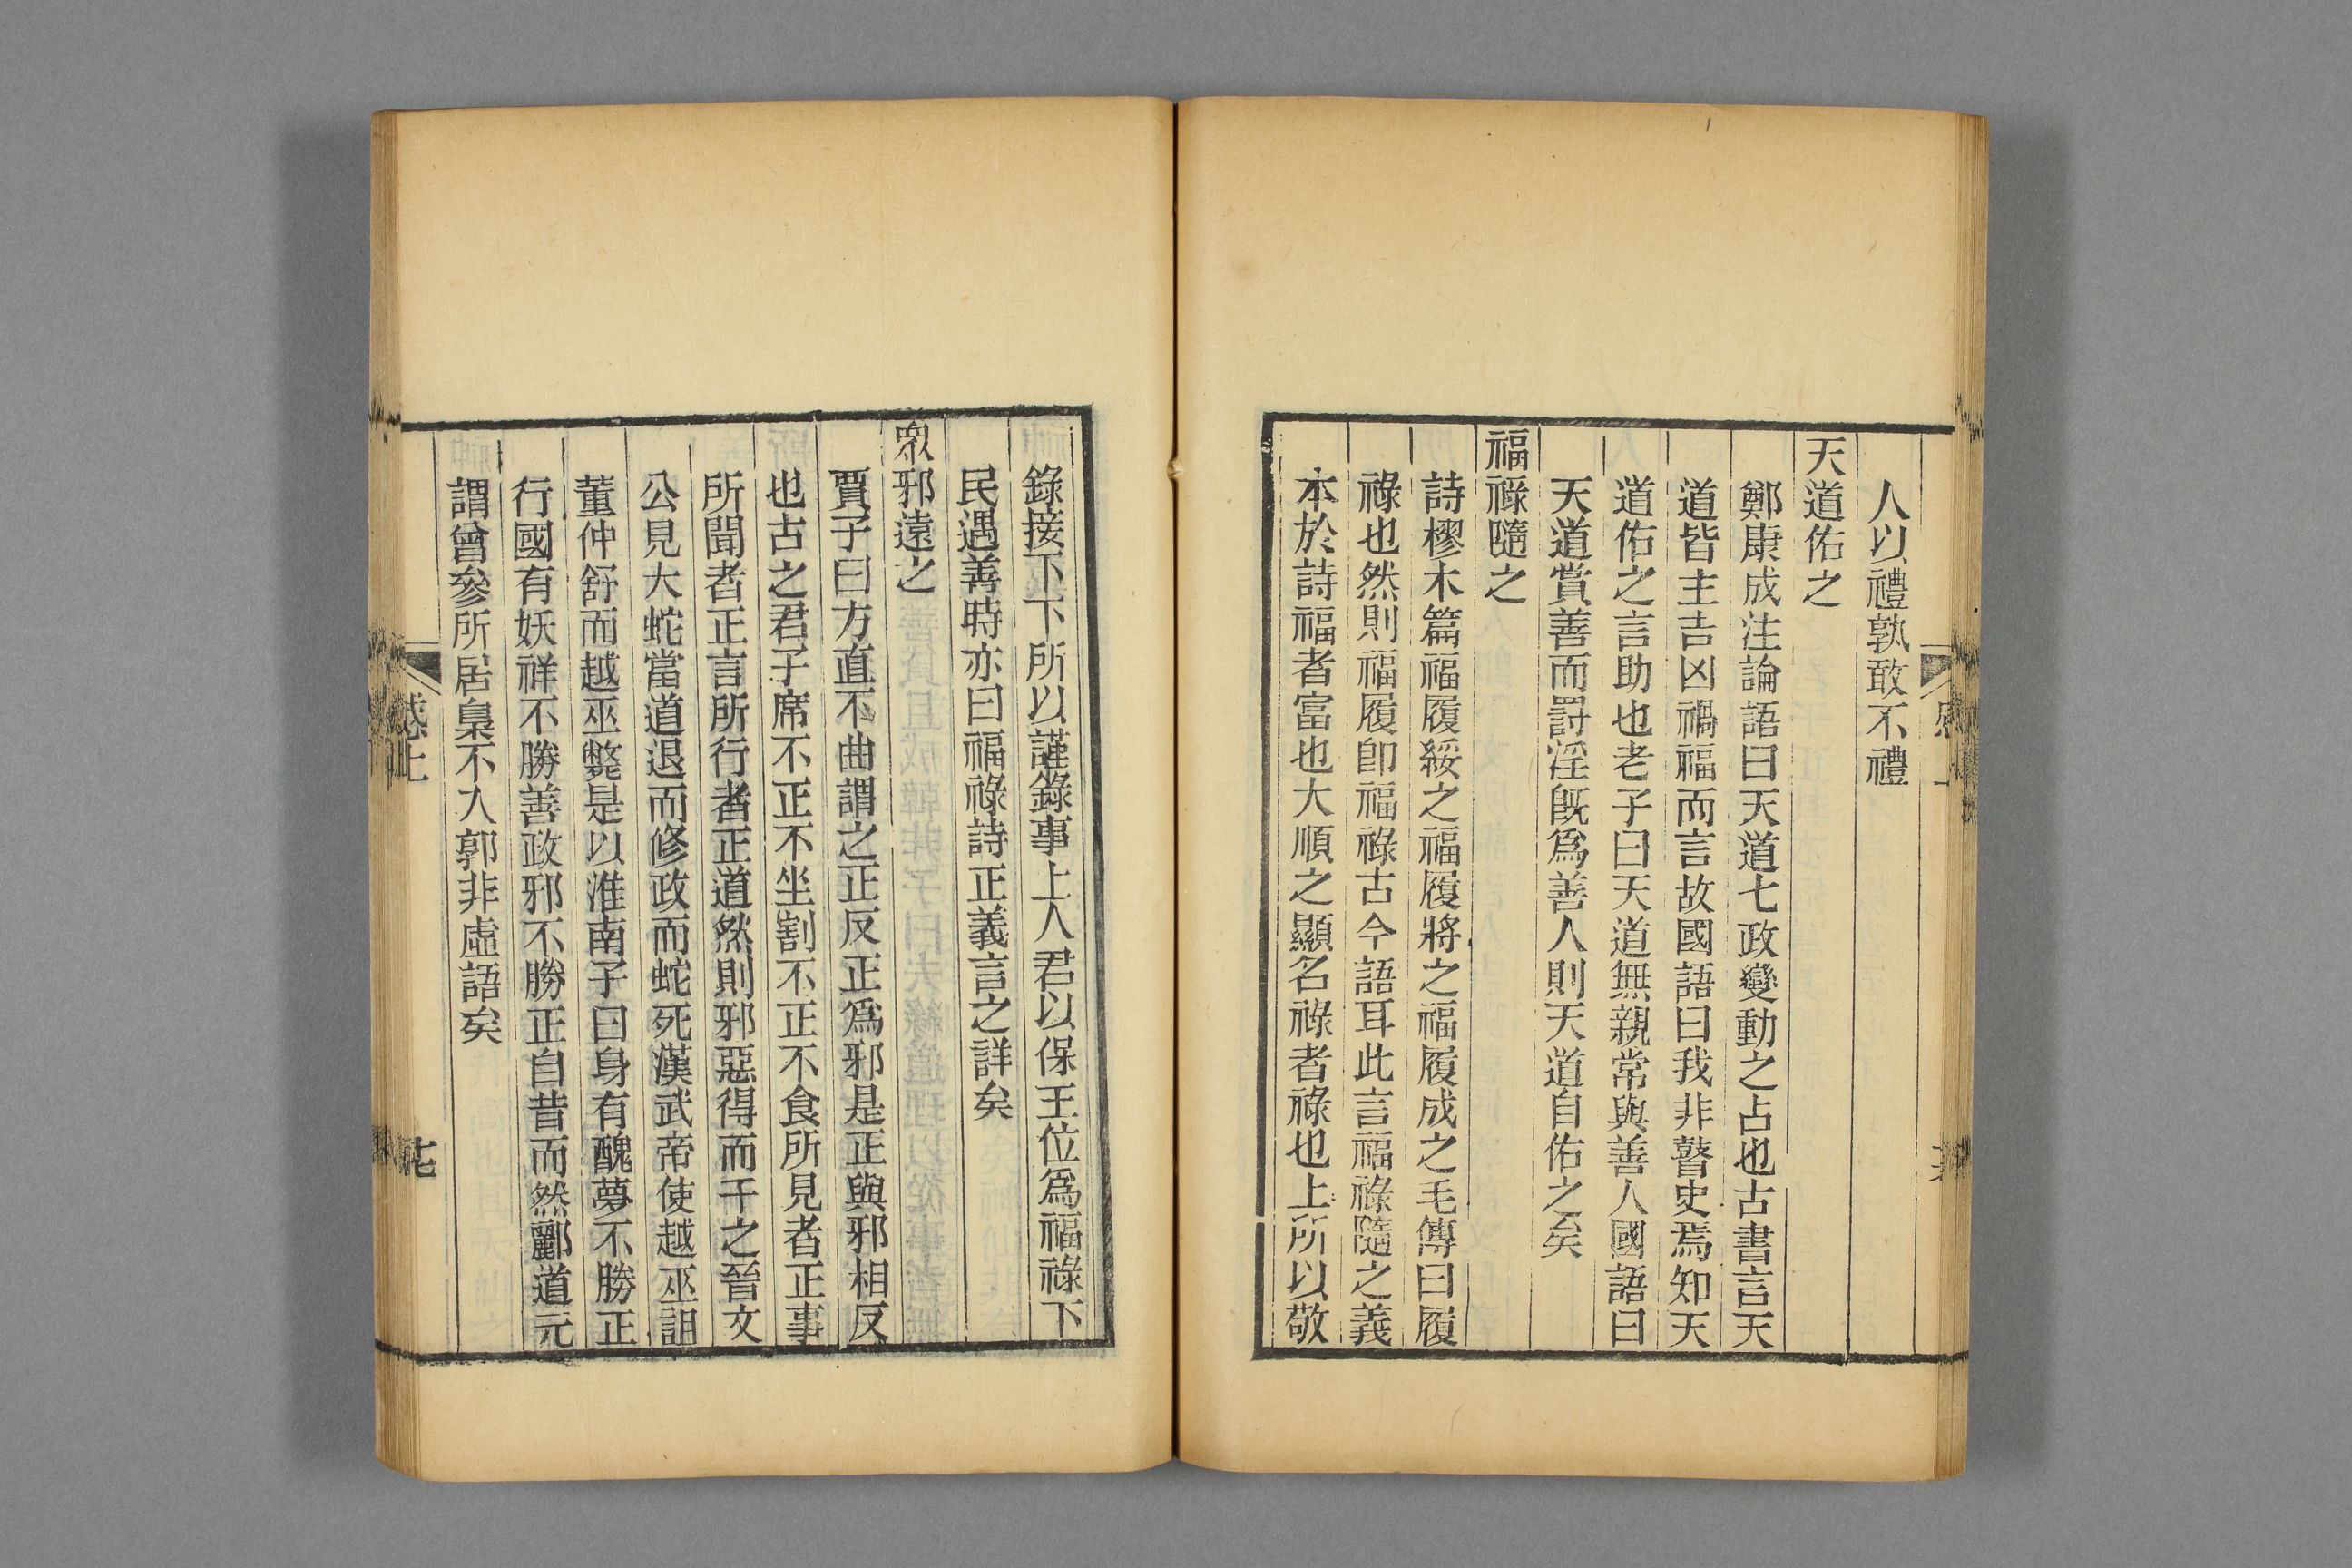 人以禮孰敢不禮
天道佑之
鄭康成注論語曰天道七政變動之占也古書言天
道皆主吉凶禍福而言故國語曰我非瞽史焉知天
道佑之言助也老子曰天道無親常與善人國語曰
天道賞善而罰淫旣爲善人則天道自佑之矣
福祿隨之
詩樛木篇福履綏之福履將之福履成之毛傳曰履
祿也然則福履卽福祿古今語耳此言福祿隨之義
本於詩福者富也大順之顯名祿者祿也上所以敬
錄接下下所以謹錄事上人君以保王位爲福祿下
民遇善時亦曰福祿詩正義言之詳矣
衆邪遠之
賈子曰方直不曲謂之正反正爲邪是正與邪相反
也古之君子席不正不坐割不正不食所見者正事
所聞者正言所行者正道然則邪惡得而干之晉文
公見大蛇當道退而修政而蛇死漢武帝使越巫詛
董仲舒而越巫斃是以淮南子曰身有醜夢不勝正
行國有妖祥不勝善政邪不勝正自昔而然酈道元
謂曾參所居梟不入郭非虛語矣
感上